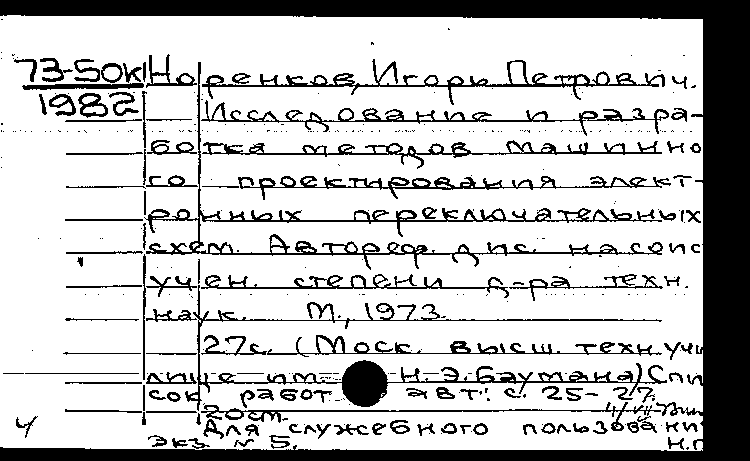 73-50к Норенков, Игорь Петрович.
1982 Исследование и разра-
ботка методов машинно
го проектирования элект-
ронных переключательных
схем. Автореф. дис. на соис
учен. степени д-ра техн.
наук. М., 1973.
27с. (Моск. высш. техн. учи
лище им. Н. Э. Баумана) Спи
сок работ авт.: с. 25-27.
20см.
Для служебного пользовани
Экз. № 5. Н.п
Ч